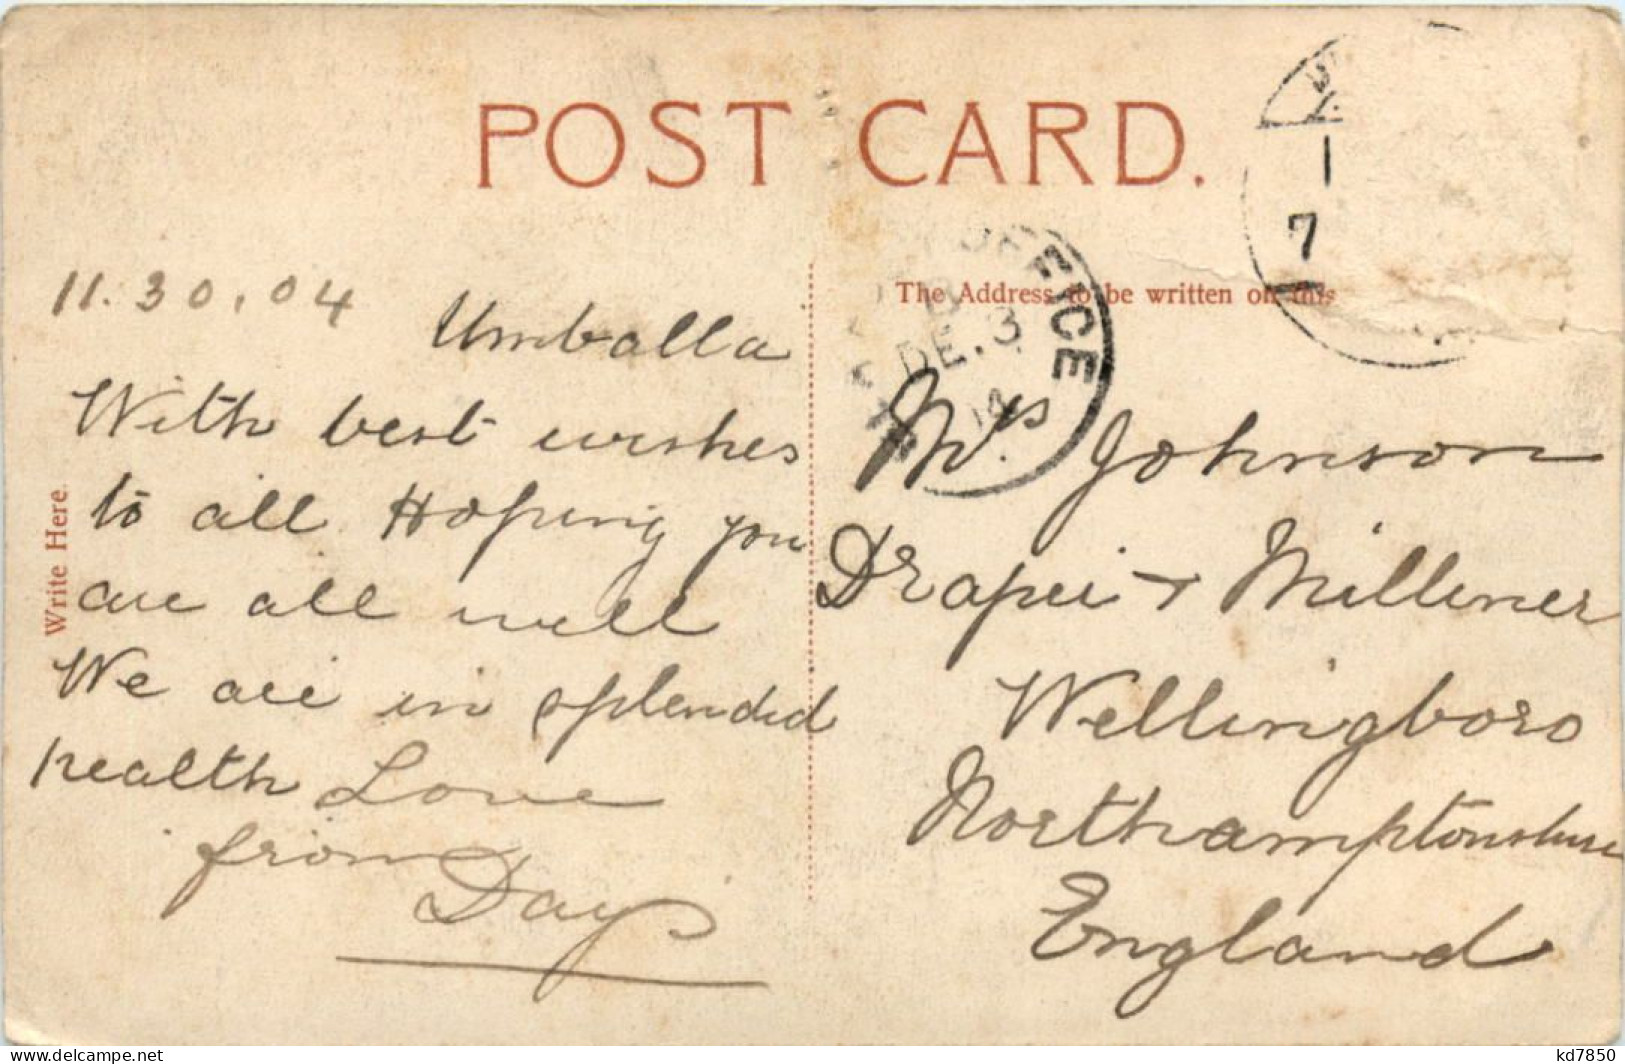 POST CARD.
The Address to be written on this
Write Here.
11.30.04
Umballa
With best wishes
to all Hoping you
are all well
We are in splendid
health Love
from
Days
OFFICE
DE.3
Mrs. Johnson
Draper + Milliner
Wellingboro
Northamptonshire
England
7
www.delcampe.net
kd7850